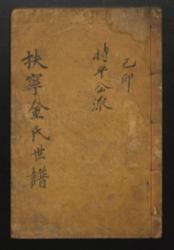 乙卯
持平公派
扶寧金氏世譜